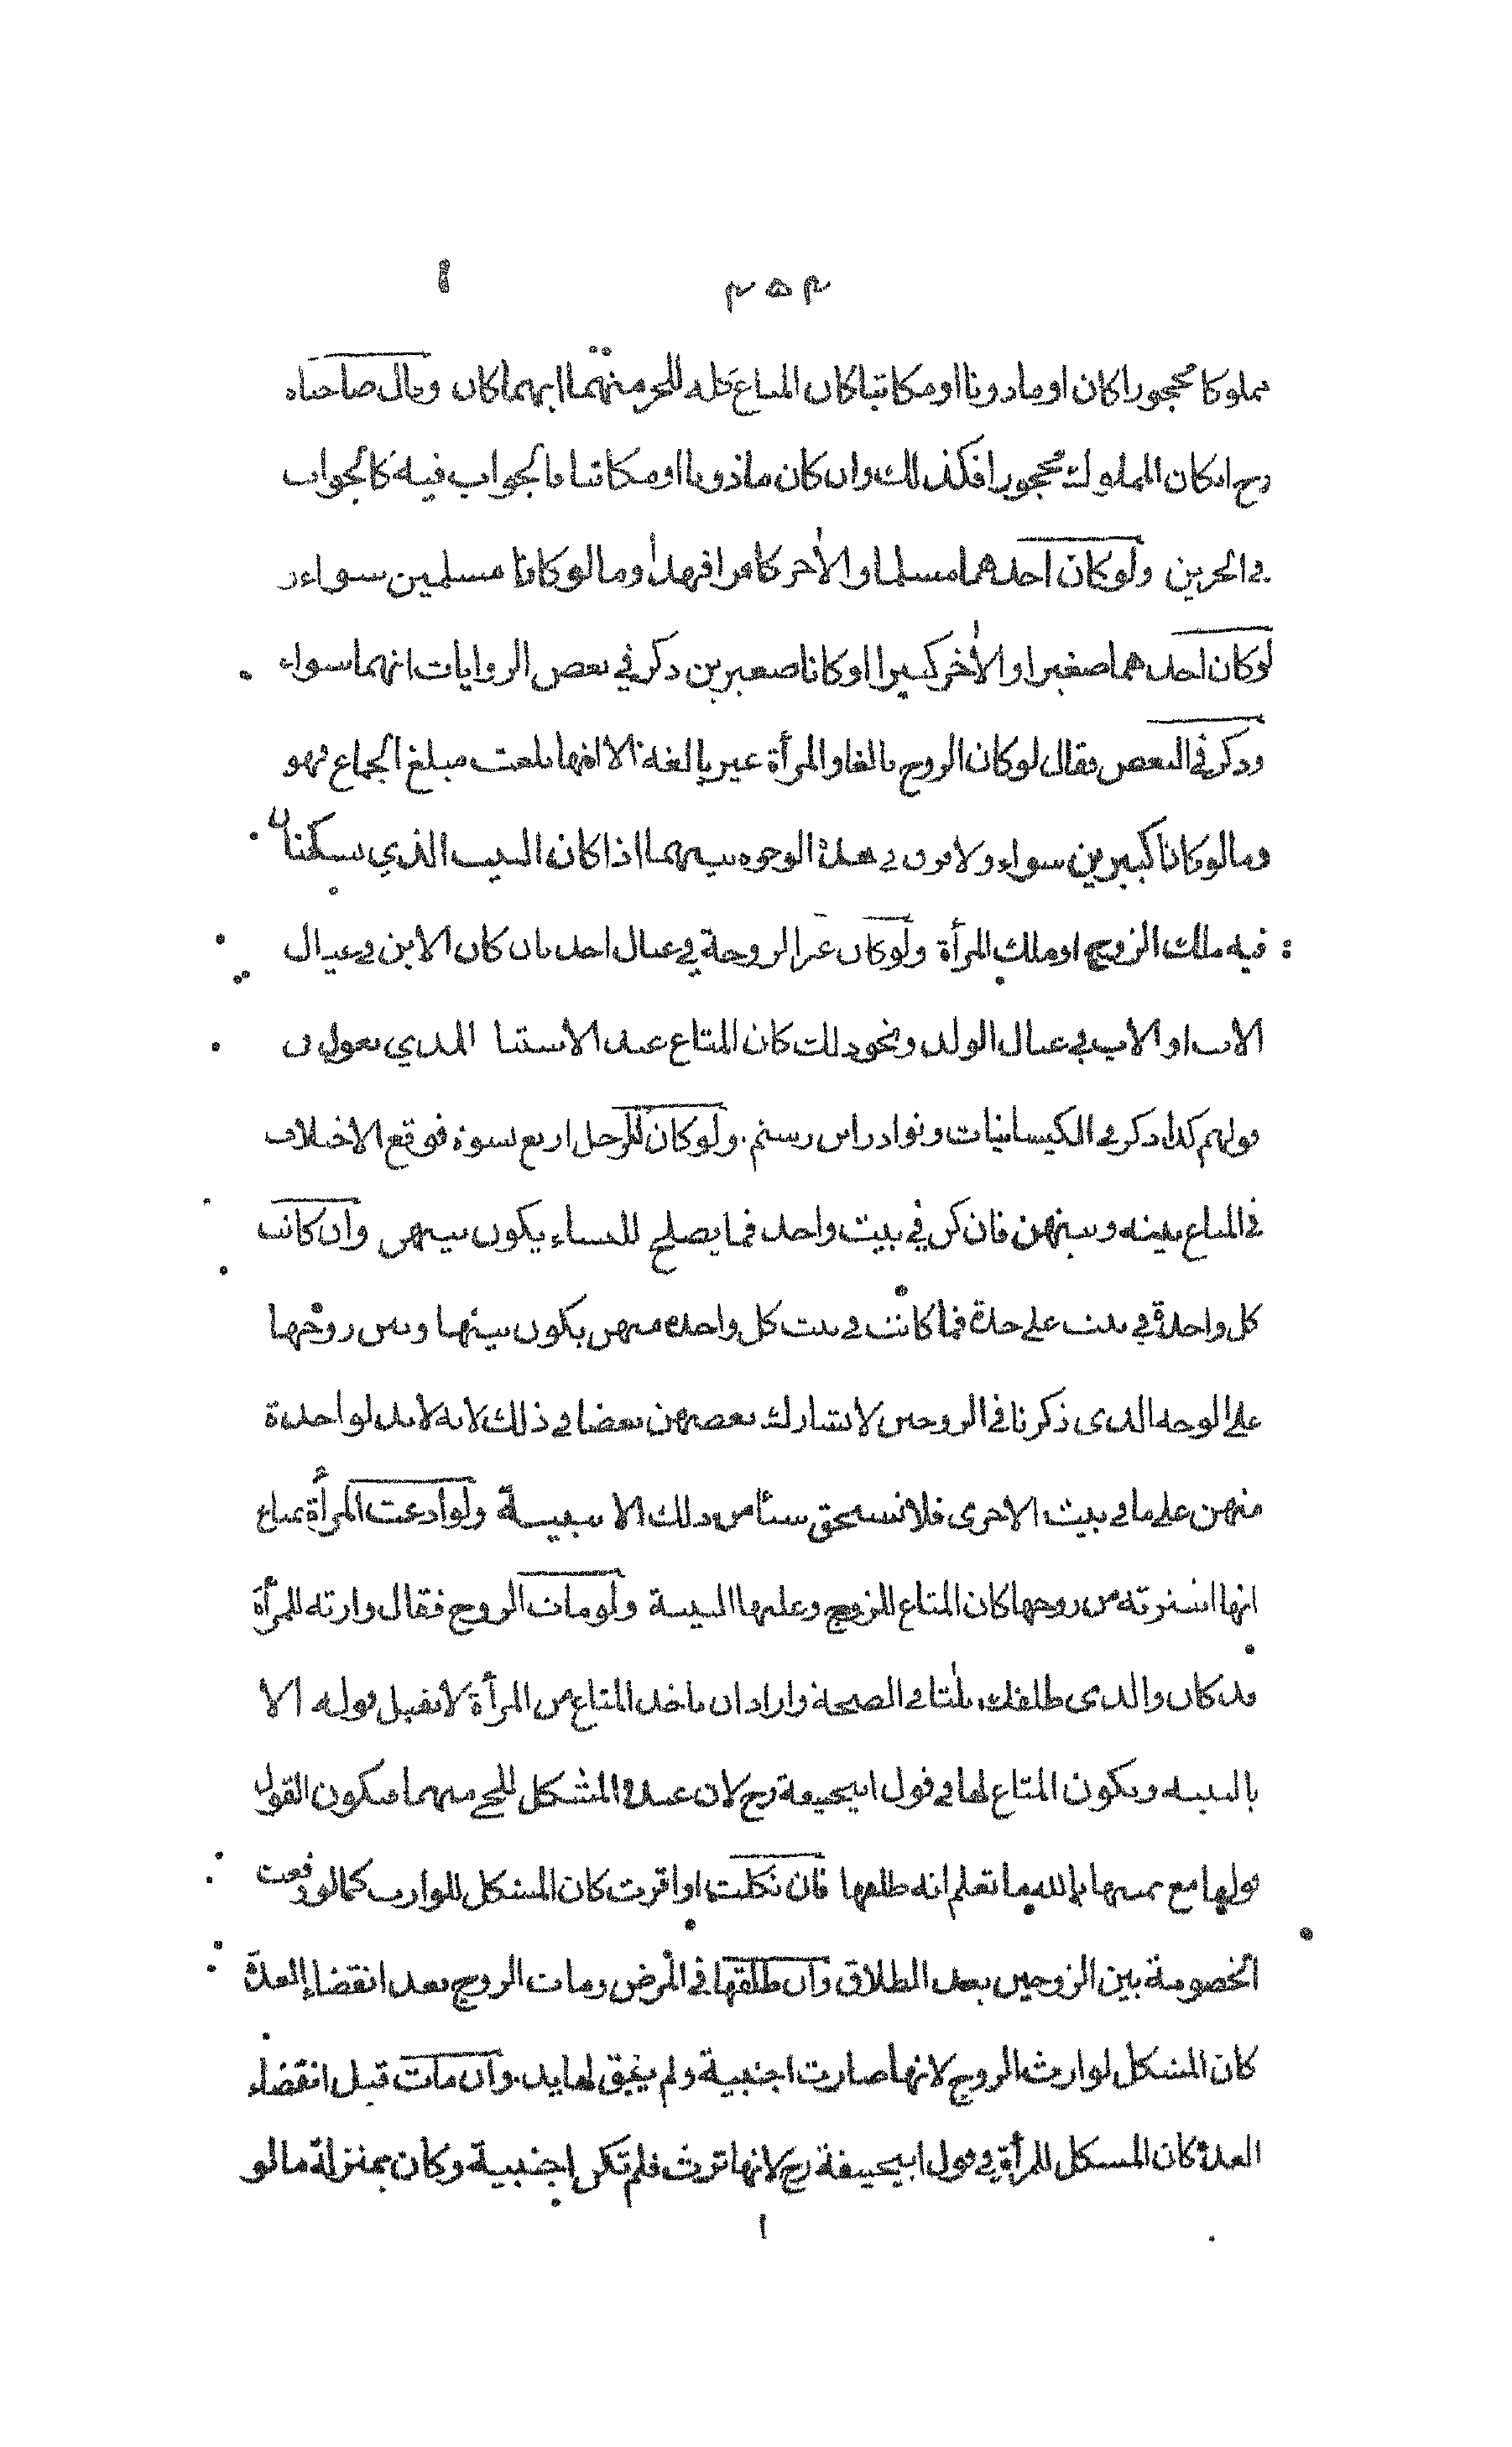 ٢٥٢
مملوكا محجورا كان او ماذونا او مكاتبا كان المتاع كله للحر منهما ايهما كان وقال صاحباه
رح ان كان المملوك محجورا فكذلك وان كان ماذونا او مكاتبا فالجواب فيه كالجواب
في الحرين ولو كان احدهما مسلما والآخر كافرا فهذا وما لو كانا مسلمين سواء و
لو كان احدهما صغيرا والآخر كبيرا او كانا صغيرين ذكر في بعض الروايات انهما سواء
وذكر في البعض فقال لو كان الزوج بالغا والمرأة غير بالغة الا انها بلغت مبلغ الجماع فهو
وما لو كانا كبيرين سواء ولا فرق في هذه الوجوه بينهما اذا كان البيت الذي يسكنان
فيه ملك الزوج او ملك المرأة ولو كان غير الزوجة في عيال احد بان كان الابن في عيال
الاب او الاب في عيال الولد ونحو ذلك كان المتاع عند الاشتباه للذي يعول في
قولهم كذا ذكر في الكيسانيات ونوادر ابن رستم ولو كان للرجل اربع نسوة فوقع الاختلاف
في المتاع بينه وبينهن فان كن في بيت واحد فما يصلح للنساء يكون بينهن وان كانت
كل واحدة في بيت على حدة فما كانت في بيت كل واحدة منهن يكون بينها وبين زوجها
على الوجه الذى ذكرنا في الزوجين لا يشارك بعضهن بعضا في ذلك لانه لا يد لواحدة
منهن على ما في بيت الاخرى فلا تستحق شيئا من ذلك الا ببينة ولو ادعت المرأة متاع
انها اشترته من زوجها كان المتاع للزوج وعليها البينة ولو مات الزوج فقال وارثه للمرأة
قد كان والدى طلقك ثلثا في الصحة واراد ان ياخذ المتاع من المرأة لا تقبل قوله الا
بالبينه ويكون المتاع لها في قول ابيحنيفة رح لان عنده المشكل للحي منهما فيكون القول
قولها مع يمينها بالله ما تعلم انه طلقها فان نكلت او اقرت كان المشكل للوارث كما لو وقعت
الخصومة بين الزوجين بعد الطلاق وان طلقها في المرض ومات الزوج بعد انقضاء العدة
كان المشكل لوارث الزوج لانها صارت اجنبية ولم يبق لها يد وان مات قبل انقضاء
العدة كان المشكل للمرأة في قول ابيحنيفة رح لانها ترث فلم تكن اجنبية وكان بمنزلة ما لو